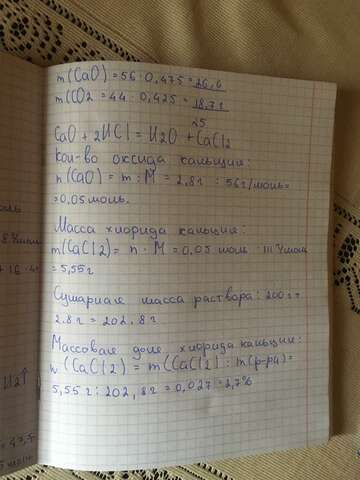 m(CaO) = 56 · 0,475 = 26,6
m(CO2 = 44 · 0,425 = 18,7г
25
CaO + 2HCl = H2O + CaCl2
Кол-во оксида кальция:
n(CaO) = m : M = 2,8г : 56г/моль=
=0,05 моль.
Масса хлорида кальция:
m(CaCl2) = n · M = 0,05 моль · 111 г/моль
= 5,55г
Сумарная масса раствора: 200г+
2.8г = 202,8г
Массовая доле хлорида кальция:
w(CaCl2) = m(CaCl2) : m(р-ра)=
5,55г : 202,8г = 0,027 = 2,7%
оль
+ 16 · 4
H2↑